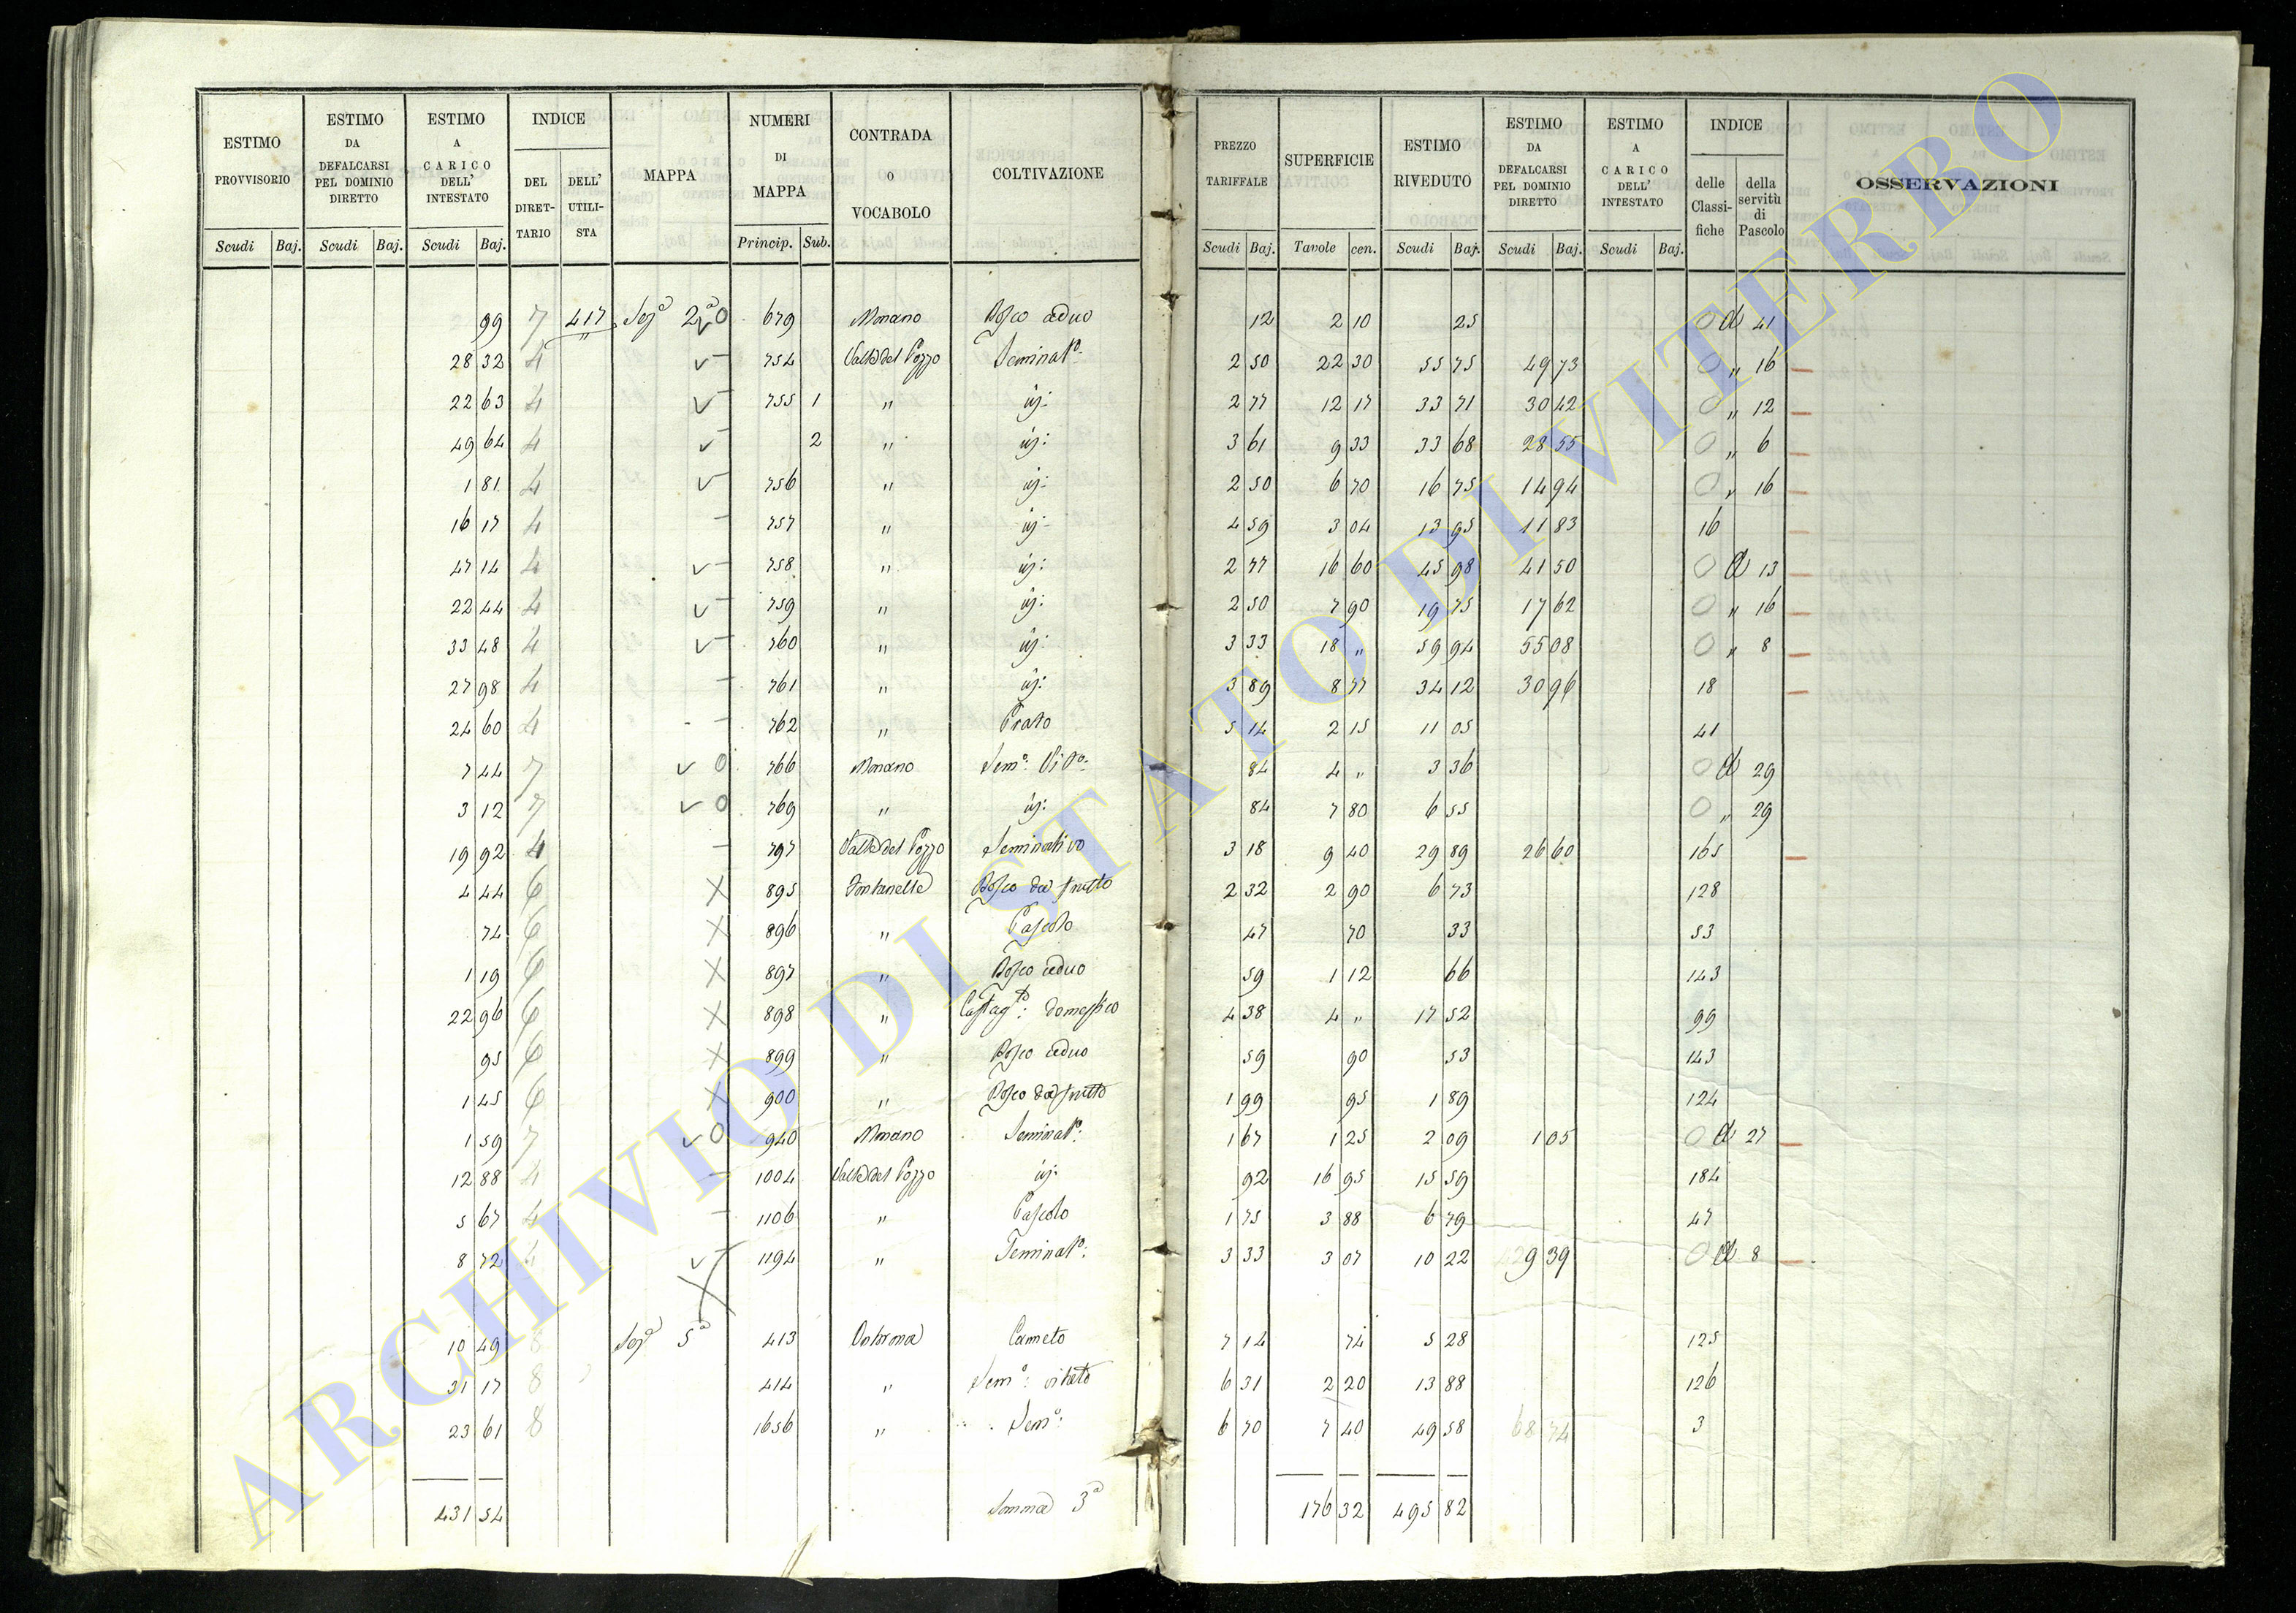 ESTIMO PROVVISORIO | ESTIMO DA DEFALCARSI PEL DOMINIO DIRETTO | ESTIMO A CARICO DELL' INTESTATO | INDICE | MAPPA | NUMERI DI MAPPA | CONTRADA O VOCABOLO | COLTIVAZIONE | PREZZO TARIFFALE | SUPERFICIE | ESTIMO RIVEDUTO | ESTIMO DA DEFALCARSI PEL DOMINIO DIRETTO | ESTIMO A CARICO DELL' INTESTATO | INDICE | OSSERVAZIONI
DEL DIRETTARIO | DELL' UTILISTA | delle Classifiche | della servitù di Pascolo
Scudi | Baj. | Scudi | Baj. | Scudi | Baj. | Princip. | Sub. | Scudi | Baj. | Tavole | cen. | Scudi | Baj. | Scudi | Baj. | Scudi | Baj.
99 | 7 | 417 | Sezª 2ª 0 | 679 | Monano | Bosco ceduo | 12 | 2 10 | 25 | 0 a 41
28 32 | 4 | 754 | Valle del Pozzo | Seminatº: | 2 50 | 22 30 | 55 75 | 49 73 | 0 " 16
22 63 | 4 | 755 | 1 | " | id: | 2 77 | 12 17 | 33 71 | 30 42 | 0 " 12
49 64 | 4 | 2 | " | id: | 3 61 | 9 33 | 33 68 | 28 55 | 0 " 6
1 81 | 4 | 756 | " | id: | 2 50 | 6 70 | 16 75 | 14 94 | 0 " 16
16 17 | 4 | 757 | " | id: | 4 59 | 3 04 | 13 95 | 11 83 | 16
47 14 | 4 | 758 | " | id: | 2 77 | 16 60 | 45 98 | 41 50 | 0 a 13
22 44 | 4 | 759 | " | id: | 2 50 | 7 90 | 19 75 | 17 62 | 0 " 16
33 48 | 4 | 760 | " | id: | 3 33 | 18 " | 59 94 | 55 08 | 0 " 8
27 98 | 4 | 761 | " | id: | 3 89 | 8 77 | 34 12 | 30 96 | 18
24 60 | 4 | 762 | " | Prato | 5 14 | 2 15 | 11 05 | 41
7 44 | 7 | 0 | 766 | Monano | Semº: Vitº: | 84 | 4 " | 3 36 | 0 a 29
3 12 | 7 | 0 | 769 | " | id: | 84 | 7 80 | 6 55 | 0 " 29
19 92 | 4 | 797 | Valle del Pozzo | Seminativo | 3 18 | 9 40 | 29 89 | 26 60 | 165
4 44 | 6 | X | 895 | Fontanelle | Bosco da frutto | 2 32 | 2 90 | 6 73 | 128
74 | 6 | X | 896 | " | Pascolo | 47 | 70 | 33 | 53
1 19 | 6 | X | 897 | " | Bosco ceduo | 59 | 1 12 | 66 | 143
22 96 | 6 | X | 898 | " | Castagto: domestico | 4 38 | 4 " | 17 52 | 99
95 | 6 | X | 899 | " | Bosco ceduo | 59 | 90 | 53 | 143
1 45 | 6 | X | 900 | " | Bosco da frutto | 1 99 | 95 | 1 89 | 124
1 59 | 7 | 0 | 940 | Monano | Seminatº: | 1 67 | 1 25 | 2 09 | 1 05 | 0 a 27
12 88 | 4 | 1004 | Valle del Pozzo | id: | 92 | 16 95 | 15 59 | 184
5 67 | 4 | 1106 | " | Pascolo | 1 75 | 3 88 | 6 79 | 47
8 72 | 4 | 1194 | " | Seminatº: | 3 33 | 3 07 | 10 22 | 9 39 | 0 a 8
10 49 | 8 | Sezª 5ª | 413 | Canneto | 7 14 | 74 | 5 28 | 125
31 17 | 8 | 414 | " | Semº: vitato | 6 31 | 2 20 | 13 88 | 126
23 61 | 8 | 1656 | " | Semº: | 6 70 | 7 40 | 49 58 | 68 74 | 3
431 54 | Somma 3ª | 176 32 | 495 82
ARCHIVIO DI STATO DI VITERBO